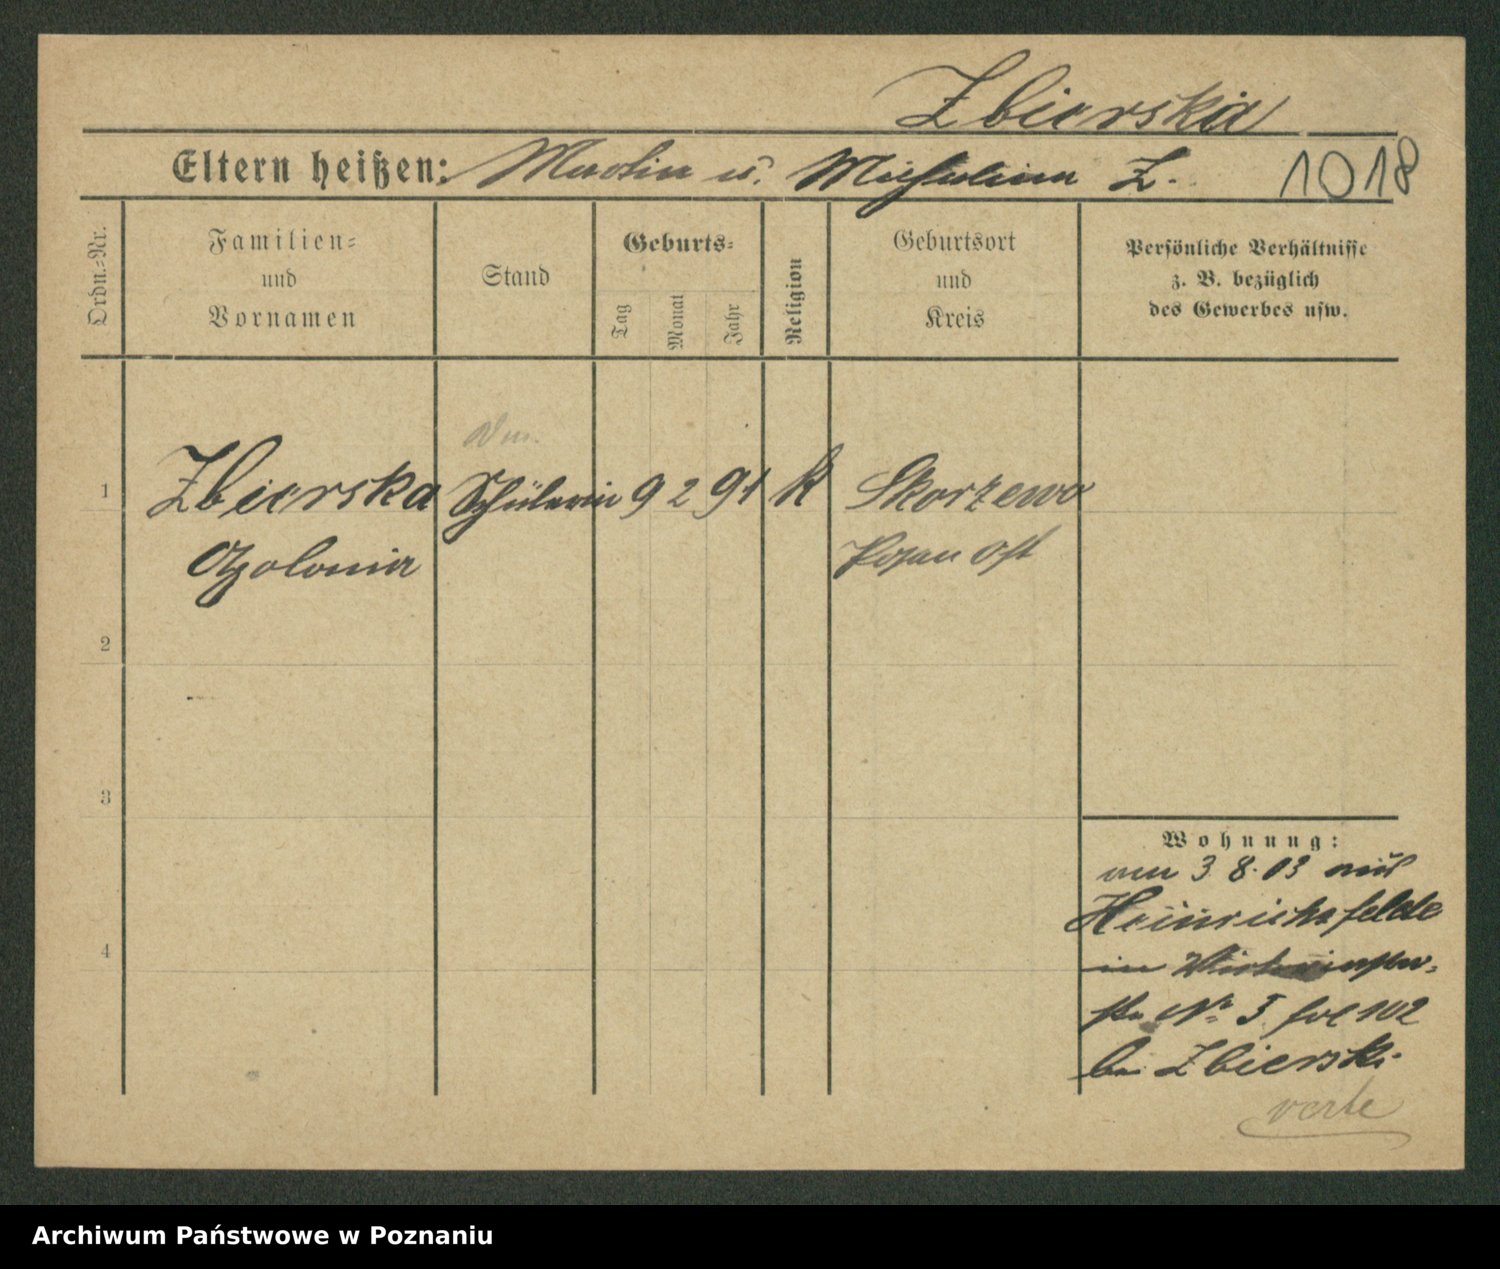 Zbierska
Eltern heißen: Martin u. Michalina Z. 1018
Ordn.=Nr.
Familien=
und
Vornamen
Stand
Geburts=
Tag
Monat
Jahr
Religion
Geburtsort
und
Kreis
Persönliche Verhältnisse
z. B. bezüglich
des Gewerbes usw.
1 Zbierska Schülerin 9 2 91 K Skorzewo
Apolonia Posen Ost
2
3
4
Wohnung:
am 3. 8. 03 aus
Heinrichsfelde
in
No 3 fol 102
bei Zbierski
verte
Archiwum Państwowe w Poznaniu